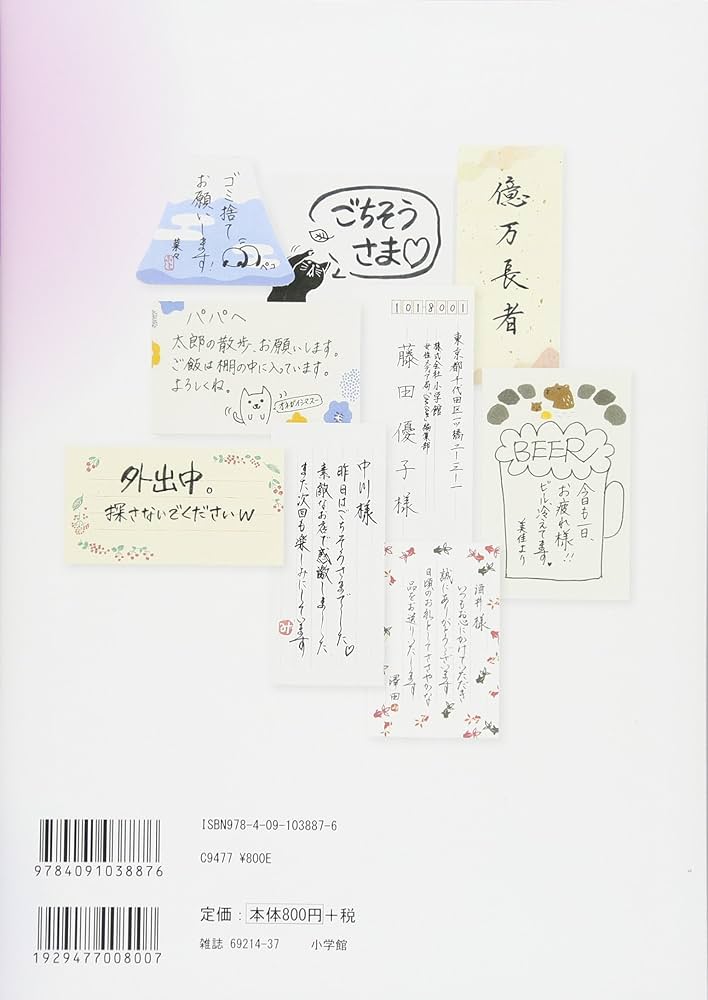 ゴミ捨て
お願いします!
菜々
ペコ
ごちそう
さま♡
億万長者
パパへ
太郎の散歩、お願いします。
ご飯は棚の中に入っています。
よろしくね。
オネガイシマスー
1018001
東京都千代田区一ツ橋二-三-一
株式会社小学館
編集部
藤田優子様
BEER
今日も一日、
お疲れ様!!
ビール、冷えてます♥
美佳より
外出中。
探さないでくださいw
中川様
昨日はごちそうさまでした♡
素敵なお店で感激しました
また次回も楽しみにしています
み
酒井様
いつもお心にかけていただき
誠にありがとうございます
日頃のお礼としてささやかな
品をお送りいたします
澤田
ISBN978-4-09-103887-6
9784091038876
C9477 ¥800E
定価:本体800円+税
1929477008007
雑誌 69214-37 小学館